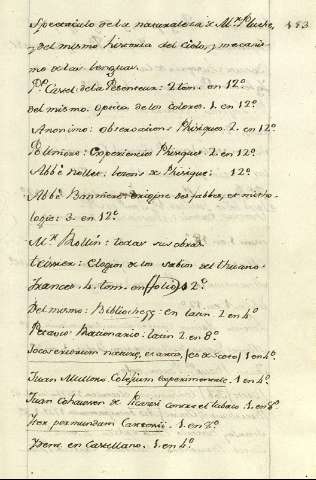 Spectaculo de la naturaleza de Mr. Pluche, 153
y del mismo historia del Cielo, y mecanis
mo de las lenguas.
Pe. Castel. de la Pesenteur: 2 tom. en 12º
Del mismo. Optica de los colores. 1. en 12º
Anonimo: observations Phisiques. 2. en 12º
Poliniere: Experiencies Phisiques. 2. en 12º
Abbé Nollet. lesons de Phisique: 12º
Abbé Bannieres: origine des fabbes, et mitho
logie: 3. en 12º
Mr. Rollin: todas sus obras
Teissier: Elogios de los sabios del
Frances. 4. tom. en (folio) 12º
Del mismo: Bibliotheg: en latin 2. en 4º
Petavio Rationario: latin 2. en 8º
Joco seriorum nature, et artis, (es de Scoto) 1. en 4º
Juan Mullero Colegium experimentale. 1. en 4º
Juan Cohausen de Picacismo contra el tabaco 1. en 8º
Iter per mundum Cartesii. 1. en 8º
Idem en Castellano. 1. en 4º